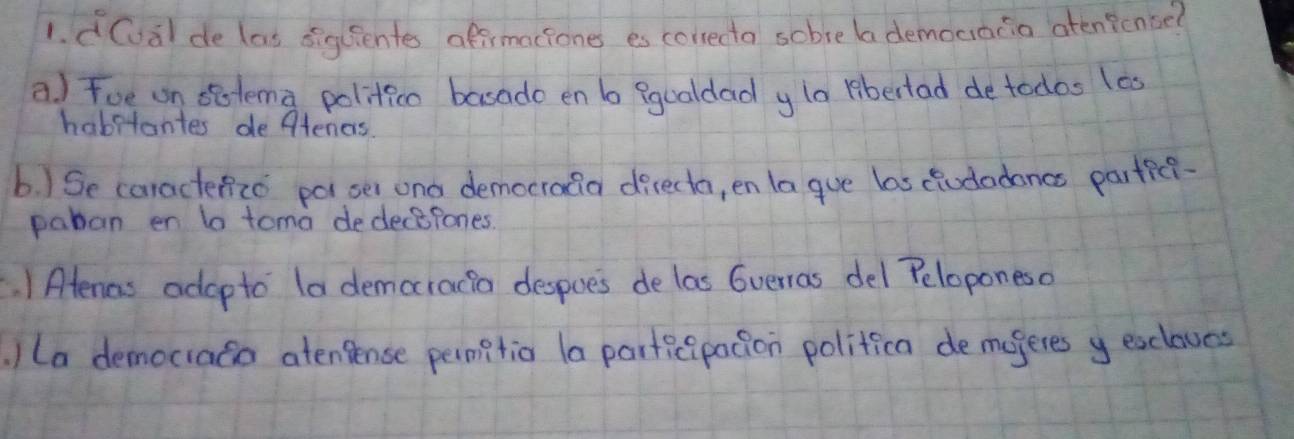 1. ¿Cuál de las siguientes afirmaciones es correcta sobre la democracia ateniense?
a.) Fue un sistema político basado en la igualdad y la libertad de todos los
habitantes de Atenas.
b.) Se caracterizó por ser una democracia directa, en la que los ciudadanos partici-
paban en la toma de decisiones.
c.) Atenas adoptó la democracia después de las Guerras del Peloponeso
.) La democracia ateniense permitia la participación politica de mujeres y esclavos